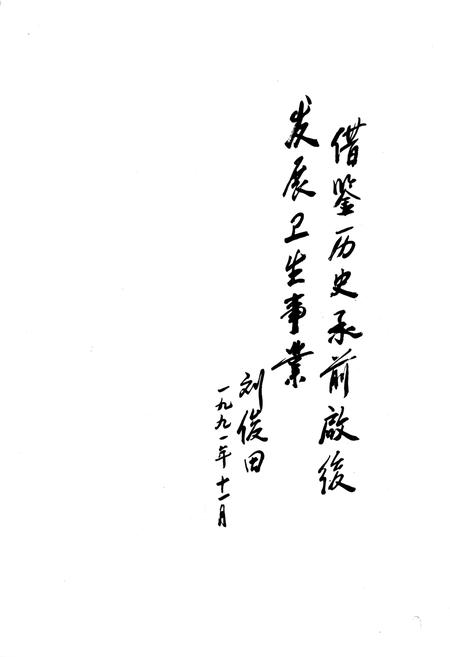 借鉴历史承前啟後
发展卫生事业
刘俊田
一九九一年十一月